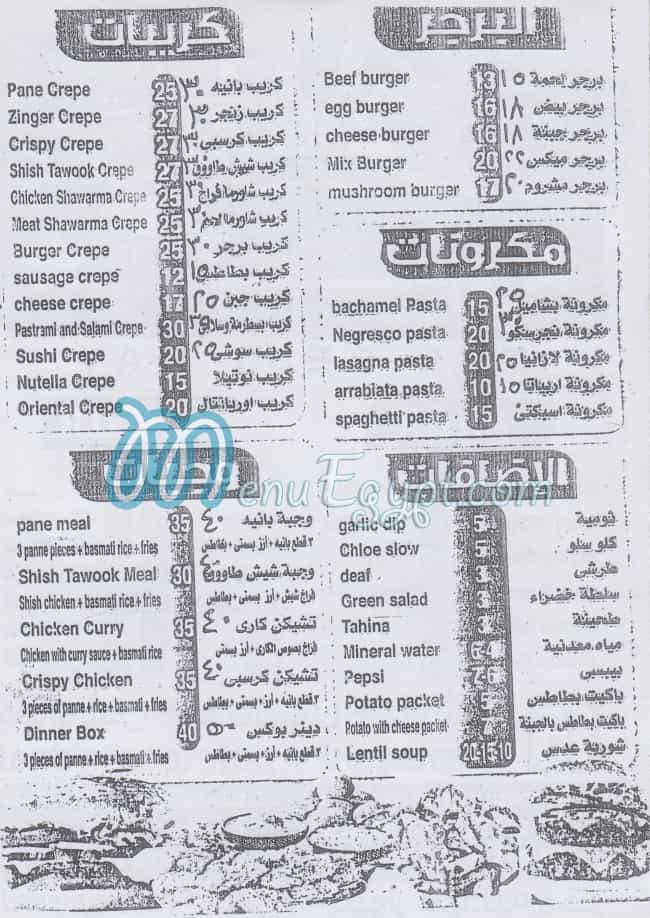 كريبات
Pane Crepe 25 ٣٠ كريب بانيه
Zinger Crepe 27 ٣٠ كريب زنجر
Crispy Crepe 27 ٣٠ كريب كرسبى
Shish Tawook Crepe 27 ٣٠ كريب شيش طاووق
Chicken Shawarma Crepe 25 ٣٠ كريب شاورما فراخ
Meat Shawarma Crepe 25 ٣٠ كريب شاورما لحم
Burger Crepe 25 ٣٠ كريب برجر
sausage crepe 12 ١٥ كريب بطاطس
cheese crepe 17 ٢٠ كريب جبن
Pastrami and Salami Crepe 30 كريب بسطرمة وسلامى
Sushi Crepe 20 ٢٥ كريب سوشى
Nutella Crepe 15 كريب نوتيلا
Oriental Crepe 20 كريب اوريانتال
البرجر
Beef burger 13 ١٥ برجر لحمة
egg burger 16 ١٨ برجر بيض
cheese burger 16 ١٨ برجر جبنة
Mix Burger 20 ٢٢ برجر ميكس
mushroom burger 17 ٢٠ برجر مشروم
مكرونات
bachamel Pasta 15 مكرونة بشاميل
Negresco pasta 20 مكرونة نجرسكو
lasagna pasta 20 ٢٥ مكرونة لازانيا
arrabiata pasta 10 ١٥ مكرونة اربياتا
spaghetti pasta 15 مكرونة اسبكتى
MenuEgypt.com
pane meal 35 ٤٠ وجبة بانيه
3 panne pieces + basmati rice + fries ٣ قطع بانيه + أرز بسمتى + بطاطس
Shish Tawook Meal 30 وجبة شيش طاووق
Shish chicken + basmati rice + fries فراخ شيش + أرز بسمتى + بطاطس
Chicken Curry 35 ٤٠ تشيكن كارى
Chicken with curry sauce + basmati rice فراخ بصوص الكارى + أرز بسمتى
Crispy Chicken 35 ٤٠ تشيكن كرسبى
3 pieces of panne + rice + fries ٣ قطع بانيه + أرز بسمتى + بطاطس
Dinner Box 40 ٥٠ دينر بوكس
3 pieces of panne + rice + fries ٣ قطع بانيه + أرز بسمتى + بطاطس
الاضافات
garlic dip 5 ثومية
Chloe slow 5 كلو سلو
deaf 3 طرشى
Green salad 3 سلطة خضراء
Tahina 3 طحينة
Mineral water مياه معدنية
Pepsi بيبسى
Potato packet باكيت بطاطس
Potato with cheese packet باكيت بطاطس بالجبنة
Lentil soup 20-15-10 شوربة عدس